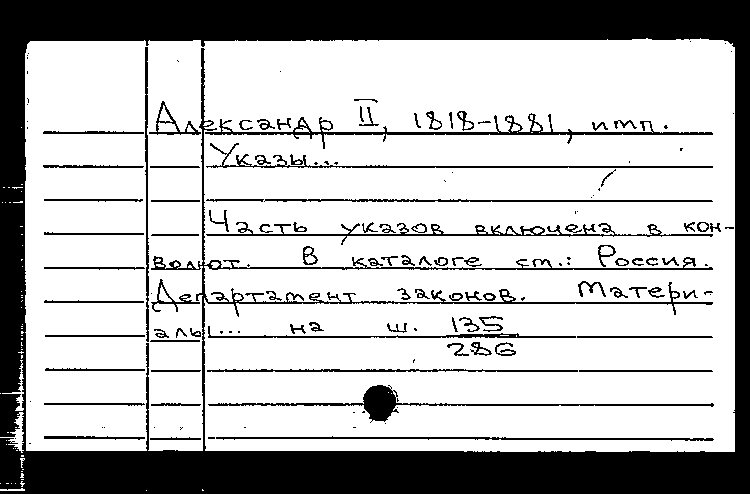 Александр II, 1818-1881, имп.
Указы...
Часть указов включена в кон-
волют. В каталоге см.: Россия.
Департамент законов. Матери-
алы... на ш. 135
286